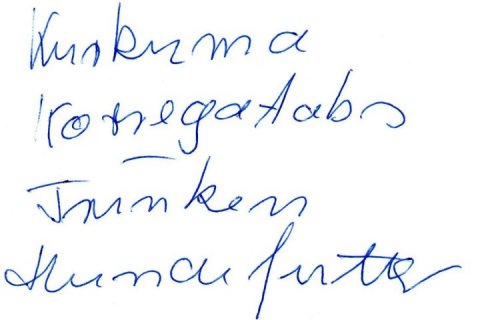 Kurkuma
Korregatabs
Trinken
Hundefutter